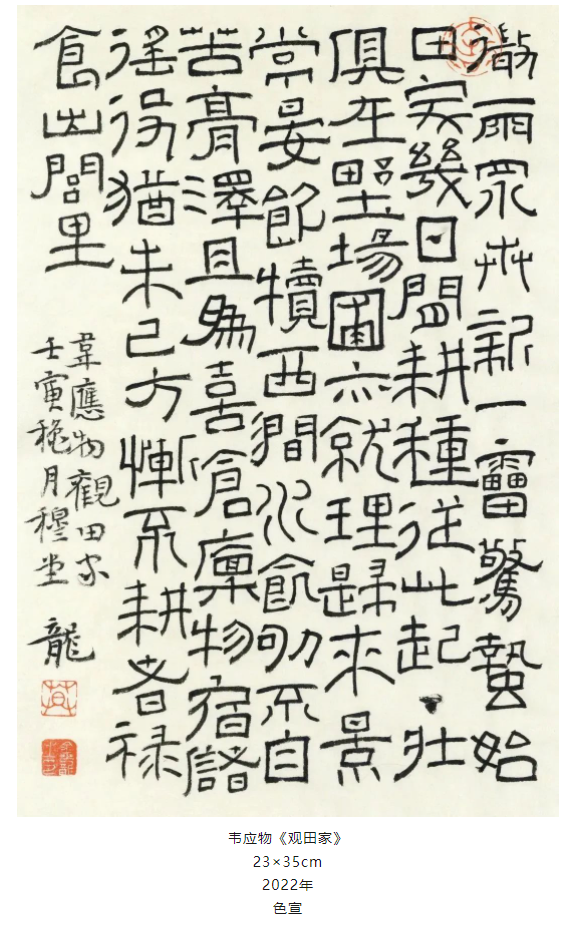 微雨眾卉新一雷驚蟄始
田家幾日閒耕種從此起丁壯
俱在野場圃亦就理歸來景
常晏飲犢西澗水飢劬不自
苦膏澤且為喜倉廩物宿儲
徭役猶未已方慚不耕者祿
食出閭里
韋應物觀田家
壬寅穐月穆堂 龍
韦应物《观田家》
23×35cm
2022年
色宣